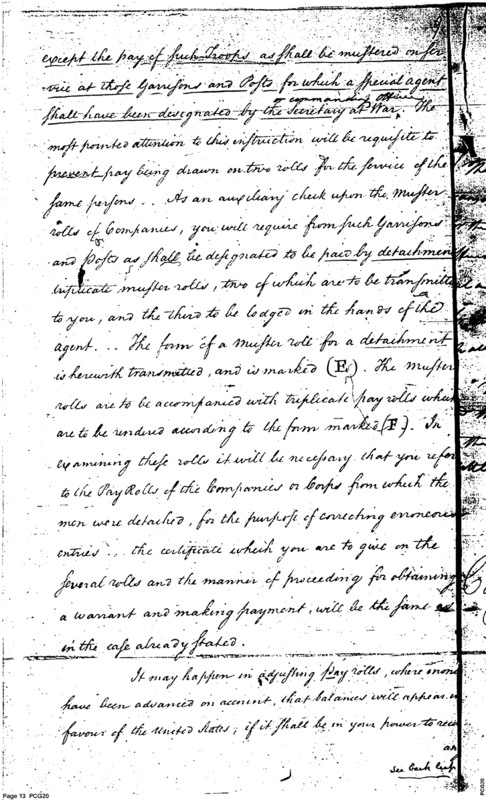 except the pay of such Troops as shall be mustered on ser
vice at those Garrisons and Posts for which a special agent
or commanding officer
shall have been designated by the Secretary at War. The
most pointed attention to this instruction will be requisite to
prevent pay being drawn on two rolls for the service of the
same persons... As an auxiliary check upon the muster
rolls of Companies, you will require from such Garrisons
and Posts as shall be designated to be paid by detachment
triplicate muster rolls, two of which are to be transmitted
to you, and the third to be lodged in the hands of the
agent... The form of a muster roll for a detachment
is herewith transmitted, and is marked (E). The muster
rolls are to be accompanied with triplicate pay rolls which
are to be rendered according to the form marked (F). In
examining these rolls it will be necessary that you refer
to the Pay Rolls of the Companies or Corps from which the
men were detached, for the purpose of correcting erroneous
entries... the certificate which you are to give on the
several rolls and the manner of proceeding for obtaining
a warrant and making payment, will be the same as
in the case already stated.
It may happen in adjusting Pay rolls, where mon
have been advanced on account, that balances will appear in
favour of the United States; if it shall be in your power to rec
an
see back
Page 13 PCG20
PCG20